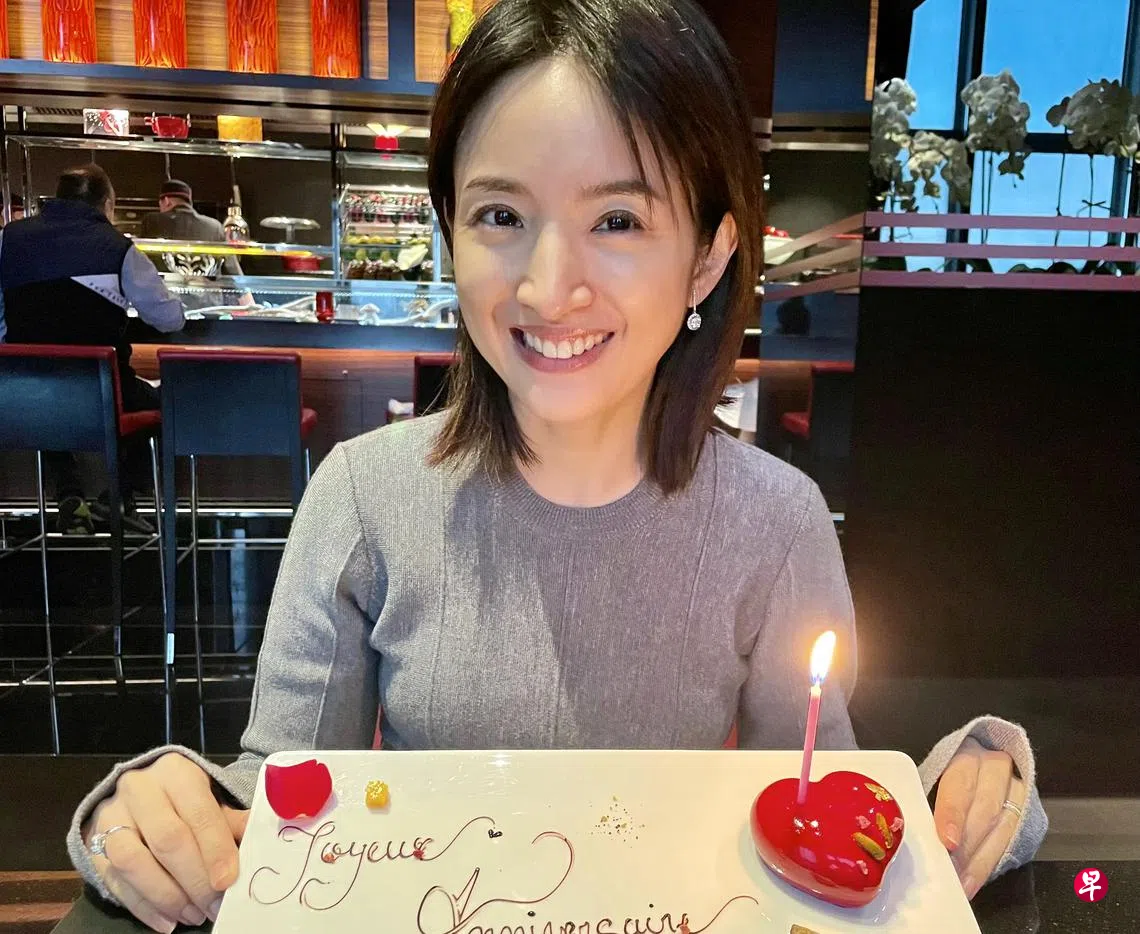 Joyeux
Anniversaire
早